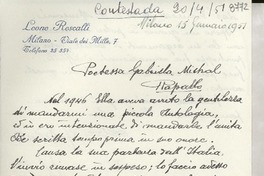 Contestada 20/4/51
Leono Roscalli
Milano - Viale dei Mille, 7
Telefono 25 251
Milano 15 Gennaio 1951
Poetessa Gabriella Mistral
Rapallo
Nel 1946 Ella aveva avuto la gentilezza
di mandarmi una piccola Antologia,
ed io ero intenzionato di mandarle l'unita
che scritta tempo prima, in suo onore.
Causa la sua partenza dall'Italia,
l'invio rimase in sospeso; lo faccio adesso